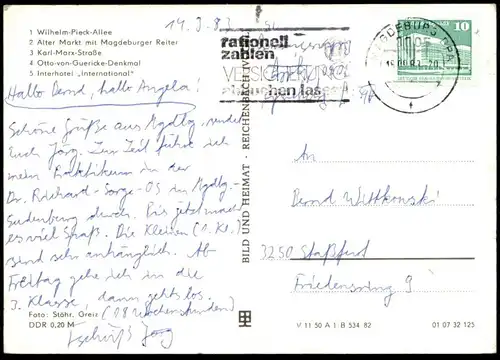 14.9.83
1 Wilhelm-Pieck-Allee
2 Alter Markt mit Magdeburger Reiter
3 Karl-Marx-Straße
4 Otto-von-Guericke-Denkmal
5 Interhotel „International"
Hallo Bernd, hallo Angela!
Schöne Grüße aus Mgdbg. sendet
Euch Jörg. Zur Zeit führe ich
mein Praktikum in der
Dr. Richard-Sorge-OS in Mgdbg.-
Sudenburg durch. Bis jetzt macht
es viel Spaß. Die Kleinen (1. Kl.)
sind sehr anhänglich. Ab
Freitag gehe ich in die
3. Klasse, dann gehts los.
(18 Wochenstunden)
Tschüß Jörg
Foto: Stöhr, Greiz
DDR 0,20 M
BILD UND HEIMAT · REICHENBACH (V
rationell
zahlen
MAGDEBURG
10
An
Bernd Wittkowski
3250 Staßfurt
Friedensring 9
V 11 50 A 1 B 534 82
01 07 32 125